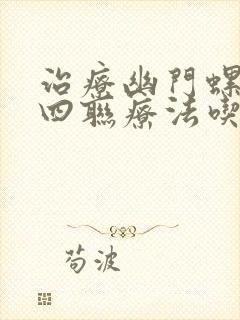 治療幽門螺
四聯療法喫
苟波